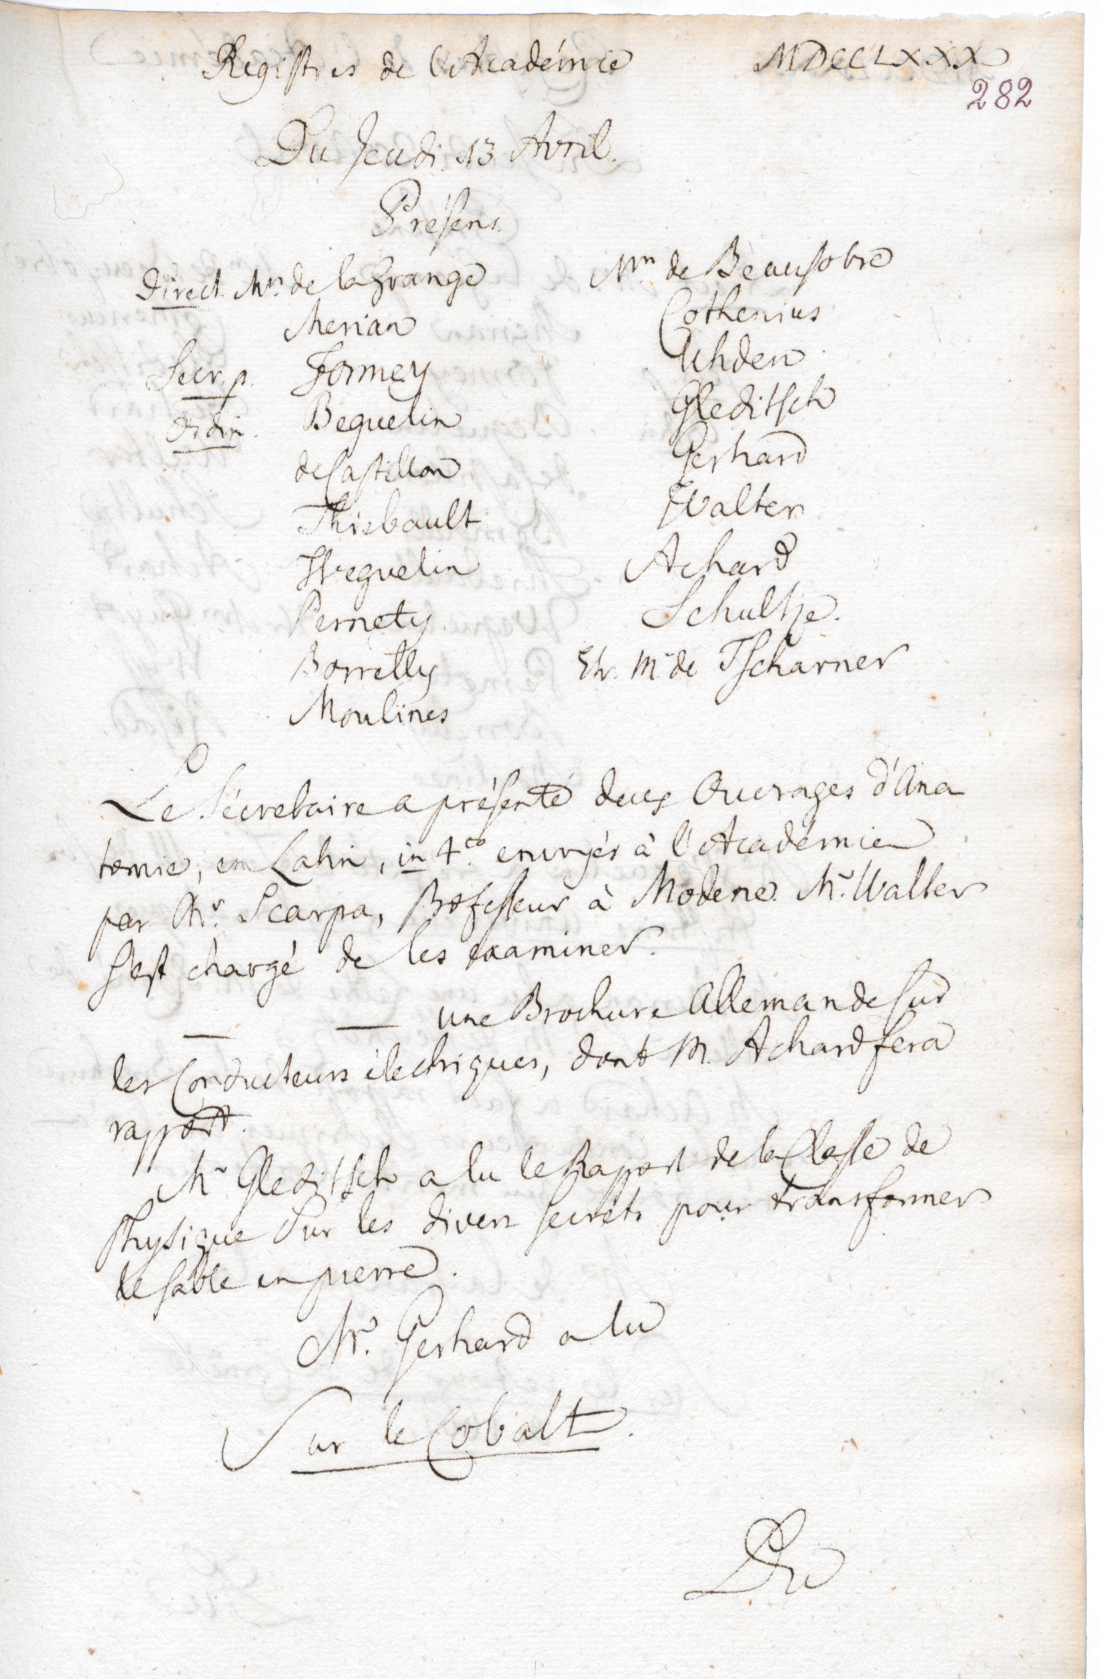 Registres de l'Académie MDCCLXXX
282
Du Jeudi 13 Avril.
Présens
Direct. Mrs. de la Grange
Merian
Secr. p. Formey
Ordin. Beguelin
de Castillon
Thiebault
Weguelin
Pernety
Borrelly
Moulines
Mrs de Beausobre
Cothenius
Uhden
Gleditsch
Gerhard
Walter
Achard
Schultze.
Etr. Mr de Tscharner
Le Sécretaire a présenté deux Ouvrages d'Ana
tomie, en Latin, in 4to. envoyés à l'Académie
par Mr. Scarpa, Professeur à Modene. Mr. Walter
s'est chargé de les examiner.
— — une Brochure Allemande sur
les Conducteurs électriques, dont M. Achard fera
rapport.
Mr Gleditsch a lu le Rapport de la Classe de
Physique sur les divers secrets pour transformer
le sable en pierre.
Mr. Gerhard a lu
Sur le Cobalt.
Du